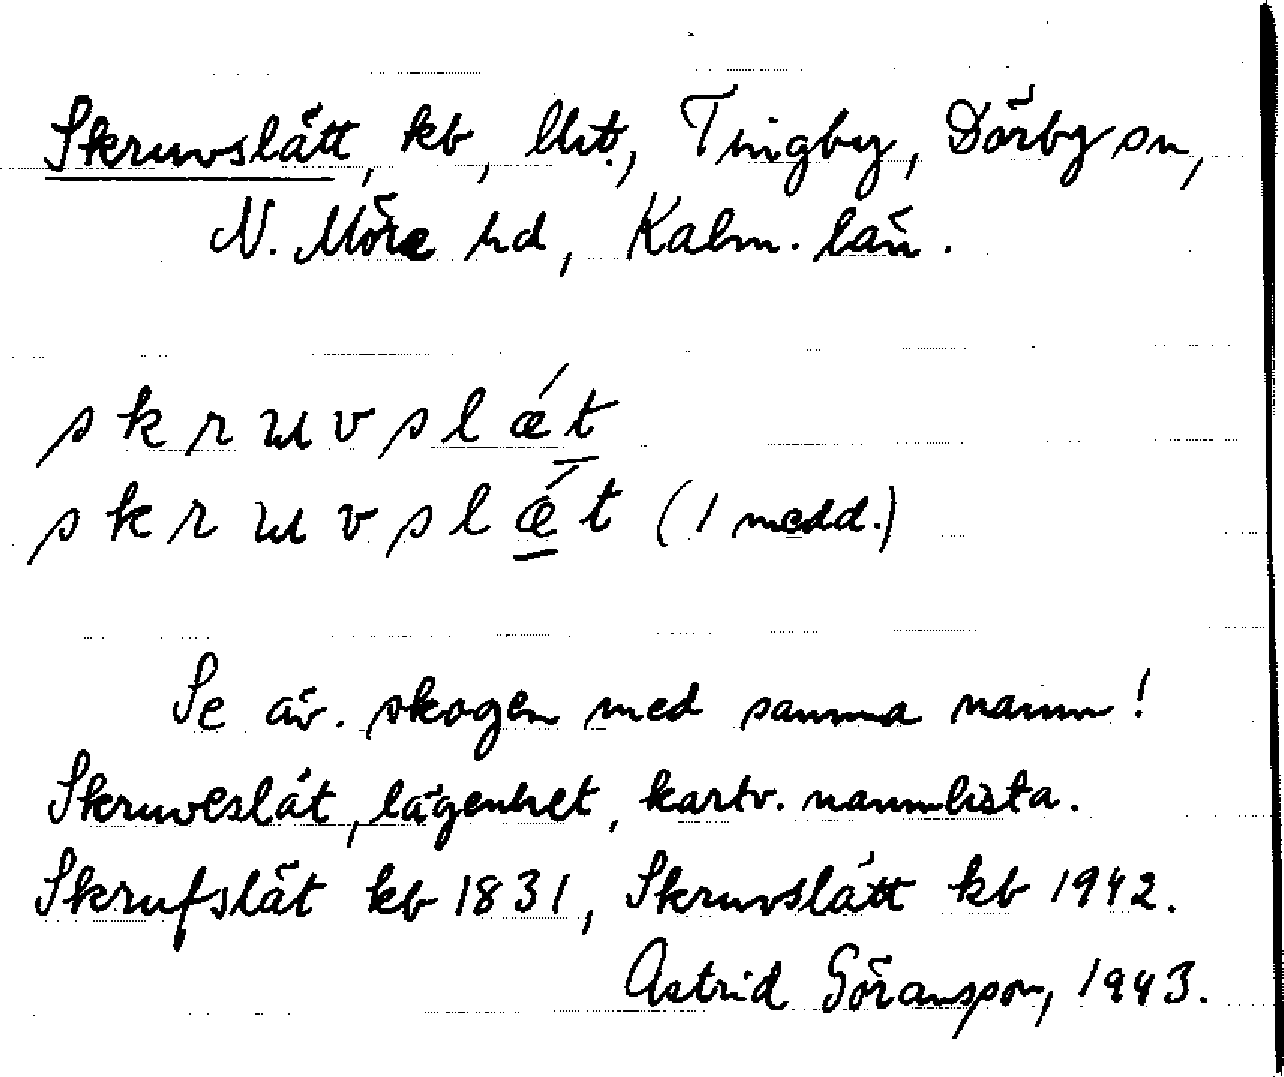 Skruvslätt, kb, Tingby, Dörby sn,
N. Möre hd, Kalm. län.
skruvslǽt
skruvslǽt (1 medd.)
Se äv. skogen med samma namn!
Skruveslät, lägenhet, kartv. namnlista.
Skrufslät kb 1831, Skruvslätt kb 1942.
Astrid Göransson, 1943.